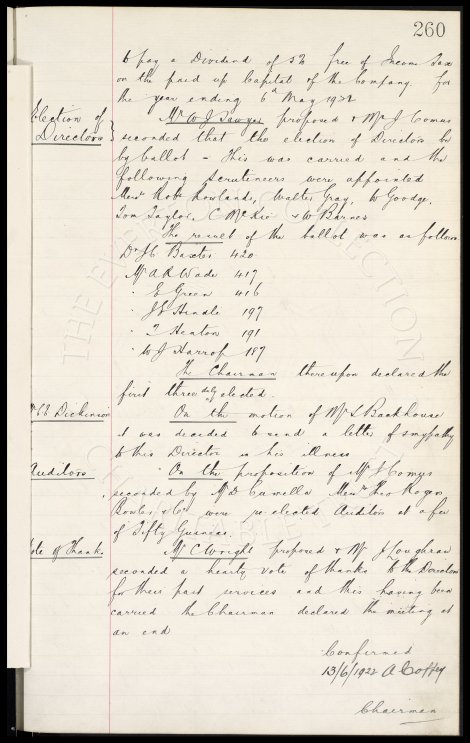 260
to pay a Dividend of 5% free of Income Tax
on the paid up Capital of the Company for
the year ending 6th May 1922
Election of
Directors
Mr W J Sawyer proposed & Mr J Comus
seconded that the election of Directors be
by ballot - This was carried and the
following Scrutineers were appointed
Messrs Robt Rowlands, Walter Gray, W Goodge,
Tom Taylor, C & W Barnes
The result of the ballot was as follows
Dr J C Baxter 420
Mr A R Wade 417
" E Green 416
" J S 197
" T Heaton 191
" W J Harrop 187
The Chairman thereupon declared the
first three duly elected.
Dickinson
On the motion of Mr S Backhouse
it was decided to send a letter of sympathy
to this Director in his illness
Auditors
On the proposition of Mr J Comus
seconded by Mr D Cumella Messrs Theo Rogers
Bowler & Co were re-elected Auditors at a fee
of Fifty Guineas.
Vote of Thanks
Mr C Wright proposed & Mr J Loughran
seconded a hearty vote of thanks to the Directors
for their past services and this having been
carried the Chairman declared the meeting at
an end
Confirmed
13/6/1922 A Coffey
Chairman